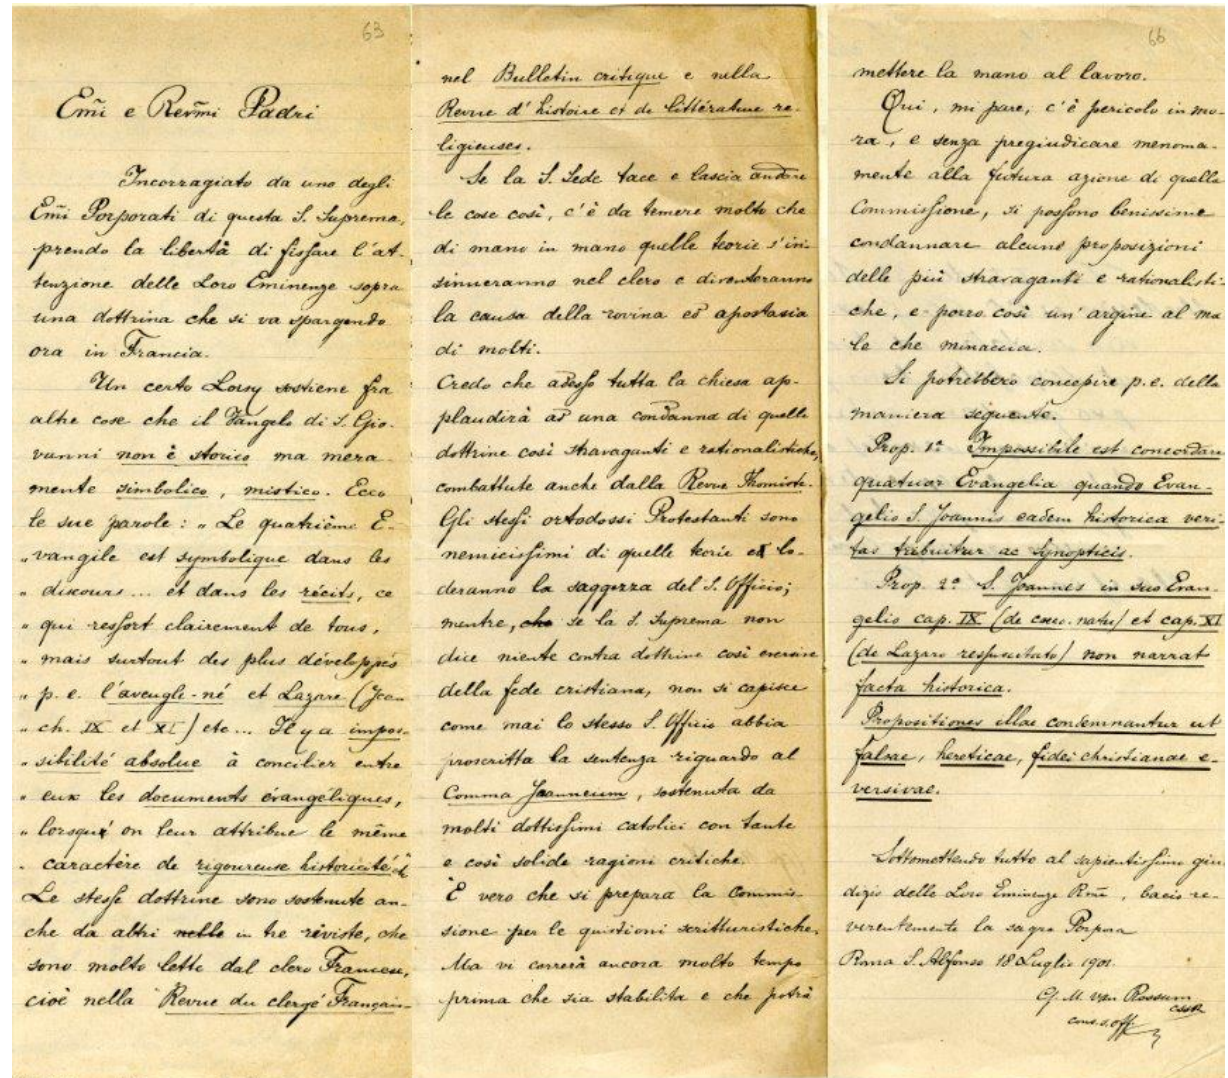 63
Emi e Revmi Padri
Incorragiato da uno degli
Emi Porporati di questa S. Suprema,
prendo la libertà di fissare l'at-
tenzione delle Loro Eminenze sopra
una dottrina che si va spargendo
ora in Francia.
Un certo Loisy sostiene fra
altre cose che il Vangelo di S. Gio-
vanni non è storico ma mera-
mente simbolico, mistico. Ecco
le sue parole: „ Le quatrième E-
„ vangile est symbolique dans les
„ discours... et dans les récits, ce
„ qui ressort clairement de tous,
„ mais surtout des plus développés
„ p. e. l'aveugle-né et Lazare (Jean
„ ch. IX et XI) etc... Il y a impos-
„ sibilité absolue à concilier entre
„ eux les documents évangéliques,
„ lorsqu' on leur attribue le même
„ caractère de rigoureuse historicité"
Le stesse dottrine sono sostenute an-
che da altri nelle in tre riviste, che
sono molto lette dal clero Francese,
cioè nella Revue du clergé Français-
nel Bulletin critique e nella
Revue d'histoire et de littérature re-
ligieuses.
Se la S. Sede tace e lascia andare
le cose così, c'è da temere molto che
di mano in mano quelle teorie s'in-
sinueranno nel clero e diventeranno
la causa della rovina ed apostasia
di molti.
Credo che adesso tutta la chiesa ap-
plaudirà ad una condanna di quelle
dottrine così stravaganti e rationalistiche,
combattute anche dalla Revue Thomiste.
Gli stessi ortodossi Protestanti sono
nemicissimi di quelle teorie ed lo-
deranno la saggezza del S. Officio;
mentre, che se la S. Suprema non
dice niente contra dottrine così eversive
della fede cristiana, non si capisce
come mai lo stesso S. Officio abbia
proscritta la sentenza riguardo al
Comma Joanneum, sostenuta da
molti dottissimi catolici con tante
e così solide ragioni critiche.
È vero che si prepara la Commis-
sione per le quistioni scritturistiche.
Ma vi correrà ancora molto tempo
prima che sia stabilita e che potrà
66
mettere la mano al lavoro.
Qui, mi pare, c'è pericolo in mo-
ra, e senza pregiudicare menoma-
mente alla futura azione di quella
Commissione, si possono benissime
condannare alcune proposizioni
delle più stravaganti e rationalisti-
che, e porre così un' argine al ma
le che minaccia.
Si potrebbero concepire p. e. della
maniera seguente.
Prop. 1ª Impossibile est concordare
quatuor Evangelia quando Evan-
gelio S. Joannis eadem historica veri-
tas tribuitur ac Synopticis.
Prop. 2ª S. Joannes in suo Evan-
gelio cap. IX (de caeco-nato) et cap. XI
(de Lazaro ressuscitato) non narrat
facta historica.
Propositiones illae condemnantur ut
falsae, hereticae, fidei christianae e-
versivae.
Sottomettendo tutto al sapientissimo giu-
dizio delle Loro Eminenze Rme, bacio re-
verentemente la sagra Porpora
Roma S. Alfonso 18 Luglio 1901.
G. M. van Rossum
CSSR
cons. s. off.